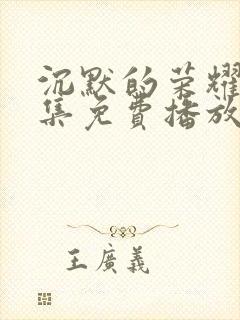 沉默的荣耀
集免費播放
王廣義